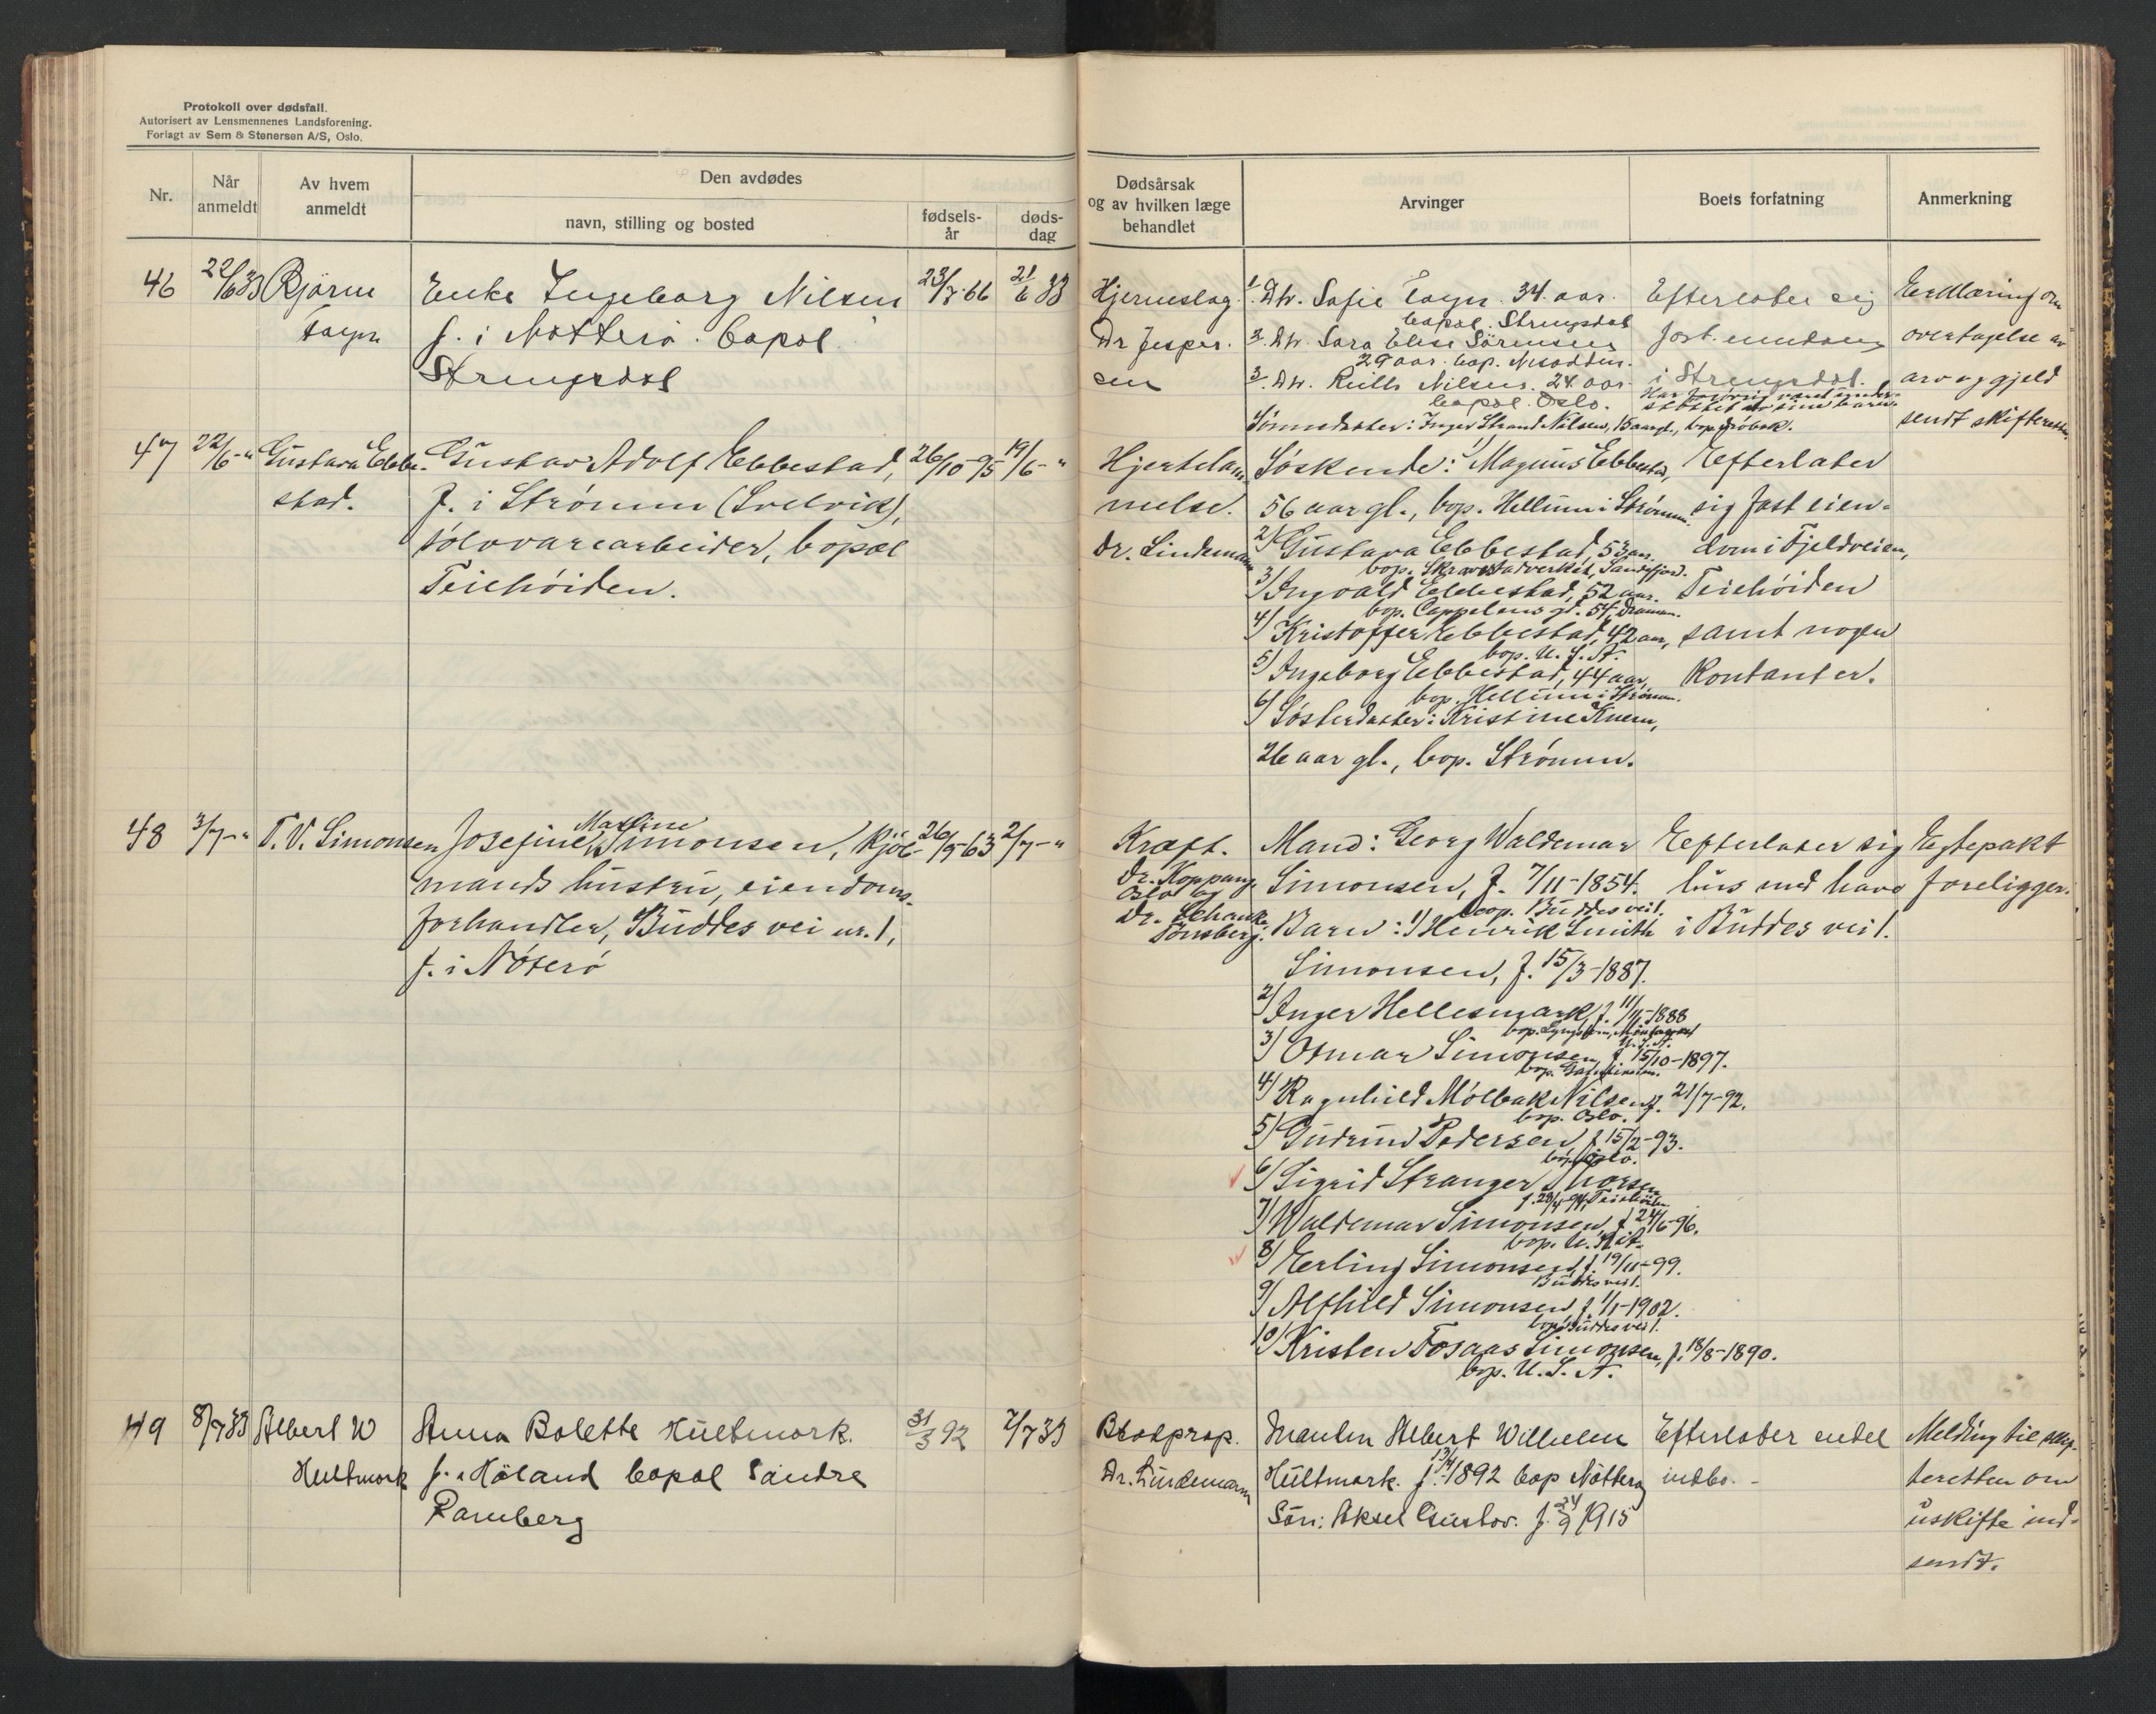 Protokoll over dødsfall.
Autorisert av Lensmennenes Landsforening.
Forlagt av Sem & Stenersen A/S, Oslo.
Nr.
Når anmeldt
Av hvem anmeldt
Den avdødes
navn, stilling og bosted
fødsels-år
døds-dag
Dødsårsak og av hvilken læge behandlet
Arvinger
Boets forfatning
Anmerkning
46
22/6 33
Bjarne
Enke Ingeborg Nilsen
f. i Nøtterö. bopæl
23/7-66
21/6 33
Hjerneslag.
Dr Jesper-
sen
1. Dtr. Sofie 34. aar.
bopæl.
2. Dtr. Sara Elise Sörensen
29 aar. bop. Nesodden.
3. Dtr. Nilsen. 24 aar.
bopæl. Oslo.
Sønnedatter: Inger Strand Nilsen, 15 aar gl., bop. Drøbak.
Efterlater sig
fast eiendom
i
Har forøvrig været under-
støttet av sine barn.
Erklæring om
overtagelse av
arv og gjeld
sendt skifteretten.
47
22/6-"
Gustava Ebbe-
stad.
Gustav Adolf Ebbestad,
f. i Strømm (Svelvik),
sølvvarearbeider, bopæl
Teiehøiden.
26/10-95
19/6-"
Hjertelam-
melse.
Dr. Lindemann
Søskende: 1) Magnus Ebbestad,
56 aar gl., bop. Hellum i Strømm.
2) Gustava Ebbestad, 53 aar.
bop. Sandefjord.
3) Ingvald Ebbestad, 52 aar.
bop. Cappelens gt. 54, Dramen.
4) Kristoffer Ebbestad, 42 aar,
bop. U.S.A.
5) Ingeborg Ebbestad, 44 aar,
bop. Hellum i Strømm.
6) Søsterdatter: Kristine Knem,
26 aar gl., bop. Strømm.
Efterlater
sig fast eien-
dom i Fjeldveien,
Teiehøiden
samt nogen
kontanter.
48
3/7-"
T. V. Simonsen
Mathine
Josefine Simonsen, kjöb-
mands hustru, eiendoms-
forhandler, Buddes vei nr. 1,
f. i Nøterö
26/5-63
2/7-"
Kræft.
Dr. Koppang
Oslo og
Dr. Schanke
Tønsberg.
Mand: Georg Waldemar
Simonsen, f. 7/11-1854.
bop. Buddes vei 1.
Barn: 1) Henrik Smith
Simonsen, f. 15/3-1887.
2) Inger Hellesmark, f. 1888
U.S.A.
3) Otmar Simonsen, f. 15/10-1897.
4) Ragnhild Mölbak Nilsen, f. 21/7-92.
bop. Oslo.
5) Gudrund Pedersen, f. 15/2-93.
bop. Oslo.
6) Sigrid Stranger Thorsen
f. 23/4-94, Teiehöiden
7) Waldemar Simonsen, f. 24/6-96.
8) Erling Simonsen, f. 19/11-99.
Buddes vei 1.
9) Alfhild Simonsen, f. 1/1-1902.
bop. Buddes vei 1.
10) Kristen Fosaas Simonsen, f. 18/8-1890.
bop. U.S.A.
Efterlater sig
hus med have
i Buddes vei 1.
Egtepakt
foreligger.
49
8/7 33
Albert W
Hultmark
Anna Bolette Hultmark.
f. i Høland bopæl Søndre
Ramberg
31/3 92
7/7 33
Blodprop.
Dr. Lindemann
Manden Albert Wilhelm
Hultmark. f. 13/4-1892 bop Nøtterø
Sön: Aksel Gustav. f. 24/9 1915
Efterlater endel
indbo. -
Melding til skif-
teretten om
uskifte ind-
sendt.